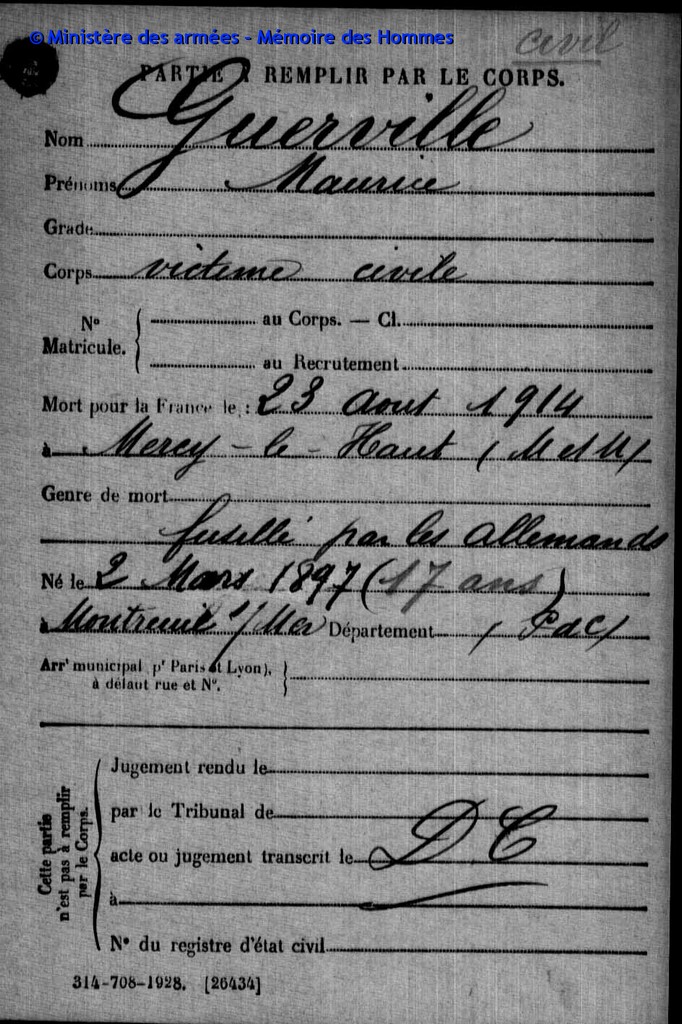 © Ministère des armées - Mémoire des Hommes
civil
PARTIE À REMPLIR PAR LE CORPS.
Nom Guerville
Prénoms Maurice
Grade
Corps victime civile
N° Matricule. { au Corps. — Cl.
au Recrutement
Mort pour la France le : 23 aout 1914
à Mercy-le-Haut (M et M)
Genre de mort
fusillé par les allemands
Né le 2 Mars 1897 (17 ans)
à Montreuil s/Mer Département (PdC)
Arrᵗ municipal (pʳ Paris et Lyon), }
à défaut rue et N°.
Cette partie n'est pas à remplir par le Corps.
Jugement rendu le
par le Tribunal de
acte ou jugement transcrit le DC
à
N° du registre d'état civil
314-708-1928. [26434]